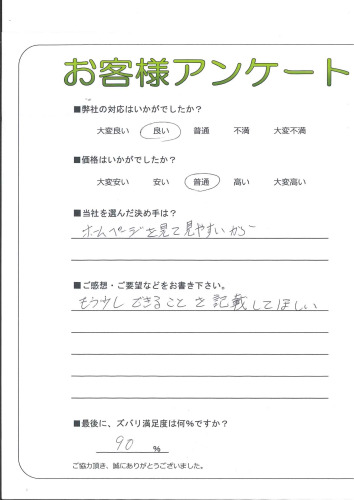 お客様アンケート
■弊社の対応はいかがでしたか？
大変良い 良い 普通 不満 大変不満
■価格はいかがでしたか？
大変安い 安い 普通 高い 大変高い
■当社を選んだ決め手は？
ホームページを見て見やすいから
■ご感想・ご要望などをお書き下さい。
もう少しできることを記載してほしい
■最後に、ズバリ満足度は何%ですか？
90 %
ご協力頂き、誠にありがとうございました。